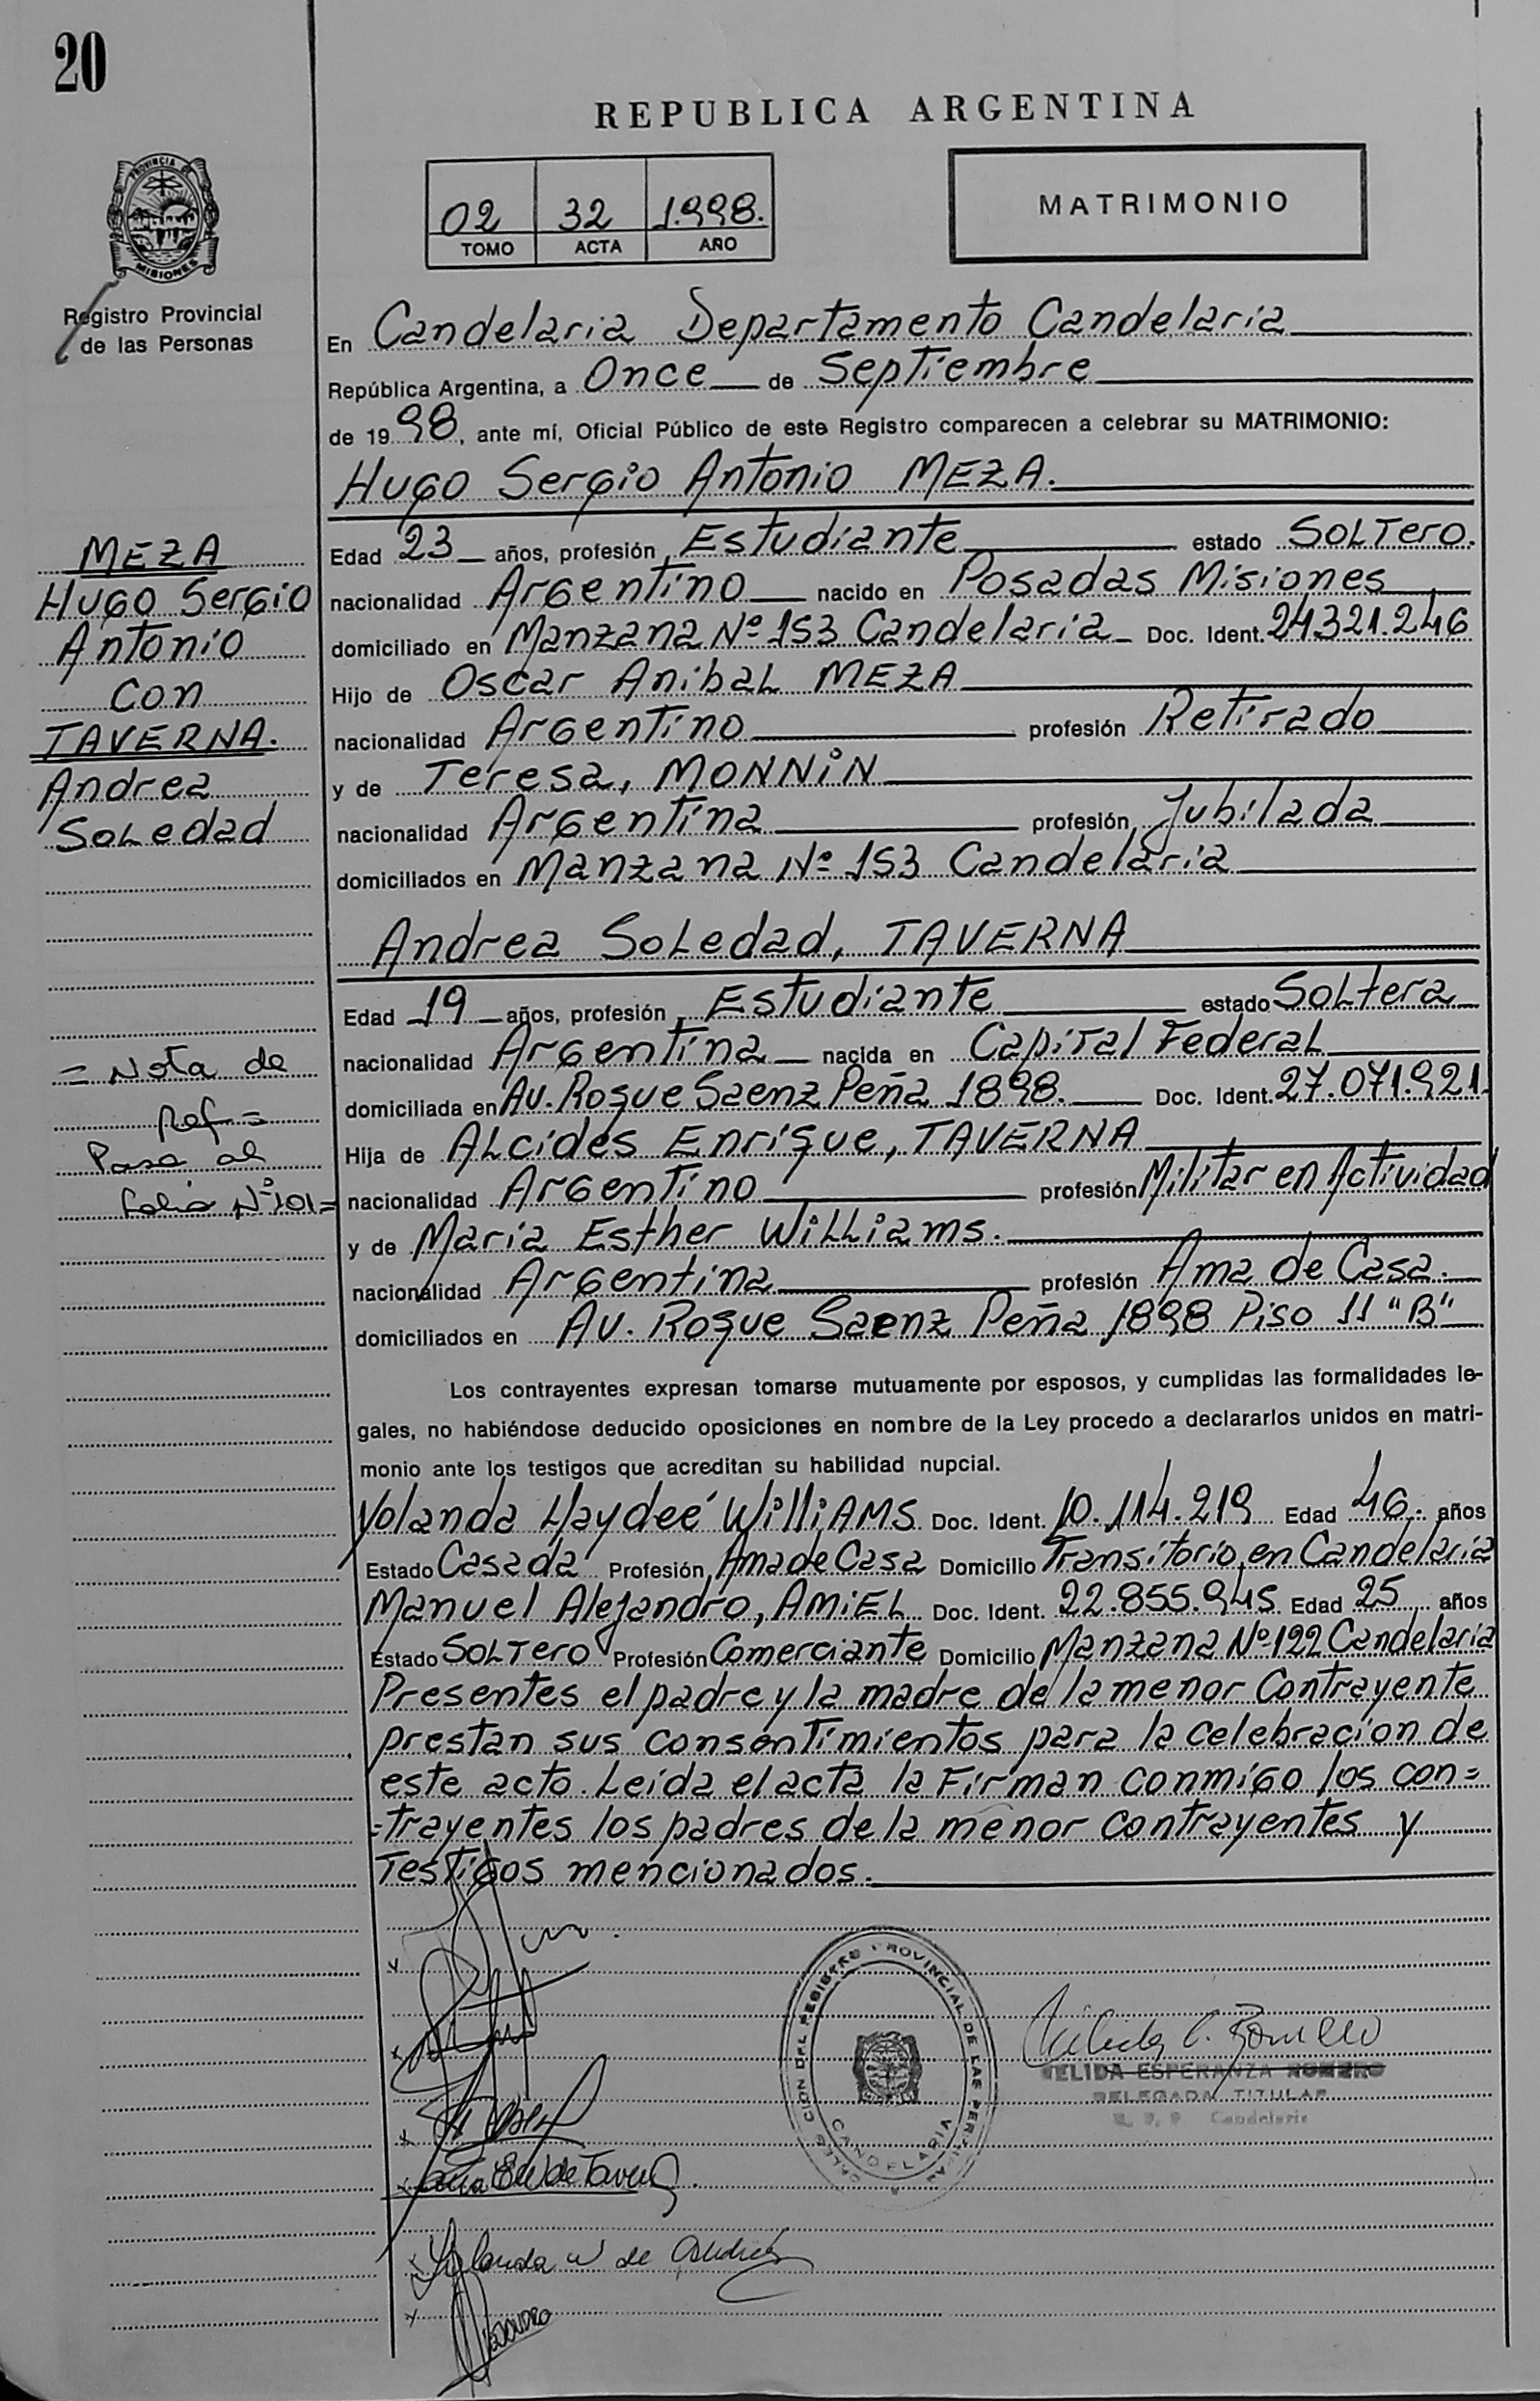 20
REPUBLICA ARGENTINA
PROVINCIA DE
MISIONES
Registro Provincial
de las Personas
02 32 1.998.
TOMO ACTA AÑO
MATRIMONIO
En Candelaria Departamento Candelaria
República Argentina, a Once de Septiembre
de 19 98, ante mí, Oficial Público de este Registro comparecen a celebrar su MATRIMONIO:
Hugo Sergio Antonio MEZA.
MEZA
Hugo Sergio
Antonio
con
TAVERNA.
Andrea
Soledad
Edad 23 años, profesión Estudiante estado Soltero.
nacionalidad Argentino nacido en Posadas Misiones
domiciliado en Manzana Nº 153 Candelaria Doc. Ident. 24.321.246
Hijo de Oscar Anibal MEZA
nacionalidad Argentino profesión Retirado
y de Teresa, MONNIN
nacionalidad Argentina profesión Jubilada
domiciliados en Manzana Nº 153 Candelaria
Andrea Soledad, TAVERNA
Edad 19 años, profesión Estudiante estado Soltera
nacionalidad Argentina nacida en Capital Federal
domiciliada en Av. Roque Saenz Peña 1898. Doc. Ident. 27.071.921.
Hija de Alcides Enrique, TAVERNA
nacionalidad Argentino profesión Militar en Actividad
y de Maria Esther Williams.
nacionalidad Argentina profesión Ama de Casa.
domiciliados en Av. Roque Saenz Peña 1898 Piso 11 "B"
= Nota de
Ref =
Pasa al
folio Nº 101=
Los contrayentes expresan tomarse mutuamente por esposos, y cumplidas las formalidades le-
gales, no habiéndose deducido oposiciones en nombre de la Ley procedo a declararlos unidos en matri-
monio ante los testigos que acreditan su habilidad nupcial.
Yolanda Haydeé WilliAMS Doc. Ident. 10.114.219 Edad 46 años
Estado Casada Profesión Ama de Casa Domicilio Transitorio en Candelaria
Manuel Alejandro, AMIEL Doc. Ident. 22.855.945 Edad 25 años
Estado Soltero Profesión Comerciante Domicilio Manzana Nº 122 Candelaria
Presentes el padre y la madre de la menor Contrayente
prestan sus consentimientos para la celebracion de
este acto. Leida el acta la Firman conmigo los con=
=trayentes los padres de la menor contrayentes y
Testigos mencionados.
REGISTRO PROVINCIAL DE LAS PERSONAS
CANDELARIA
NELIDA ESPERANZA ROMERO
DELEGADA TITULAR
R. P. P. Candelaria
Yolanda W de